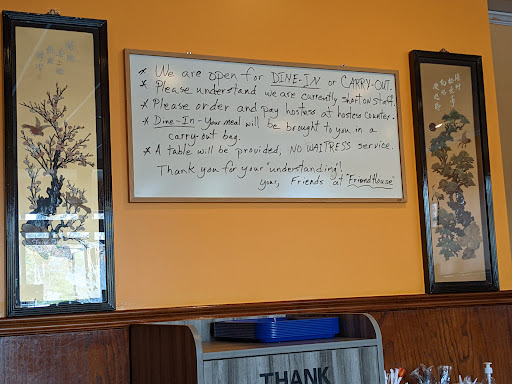 * We are open for DINE-IN or CARRY-OUT.
* Please understand we are currently short on staff.
* Please order and pay hostess at hostess counter.
* Dine-In - your meal will be brought to you in a
carry-out bag.
* A table will be provided, NO WAITRESS service.
Thank you for your "understanding"!
your, Friends at "Friend House"
THANK